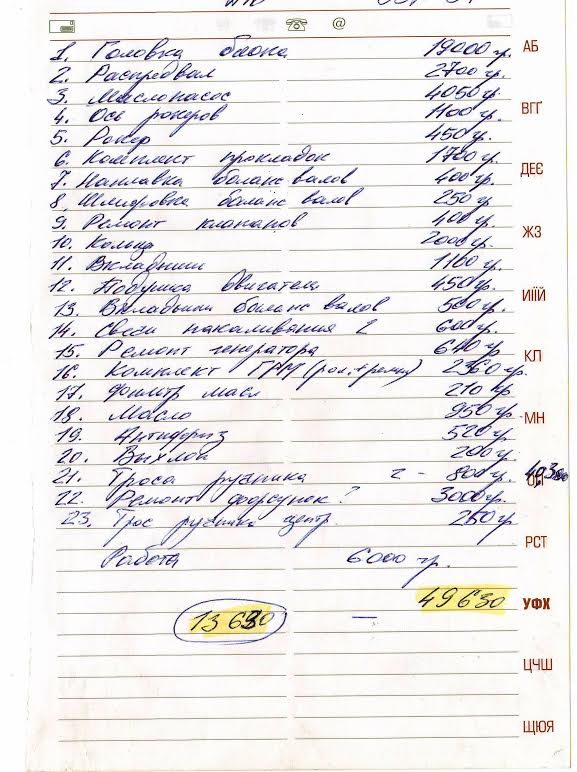 @
АБ
1. Головка блока 19000 гр.
2. Распредвал 2700 гр.
3. Маслонасос 4050 гр.
ВГҐ
4. Ось рокеров 1100 гр.
5. Рокер 450 гр.
6. Комплект прокладок 1700 гр.
ДЕЄ
7. Наплавка баланс валов 400 гр.
8. Шлифовка баланс валов 250 гр.
9. Ремонт клапанов 400 гр.
ЖЗ
10. Кольца 2000 гр.
11. Вкладыши 1160 гр.
12. Подушка двигателя 450 гр.
ИІЇЙ
13. Вкладыши баланс валов 500 гр.
14. Свечи накаливания 2 600 гр.
15. Ремонт генератора 640 гр.
КЛ
16. Комплект ГРМ (рол.+ремни) 2360 гр.
17. Фильтр масл 210 гр
18. Масло 950 гр.
МН
19. Антифриз 520 гр.
20. Выхлоп 200 гр.
21. Троса ручника 2 - 800 гр.
22. Ремонт форсунок ? 3000 гр.
23. Трос ручника центр. 250 гр
РСТ
Работа 6000 гр.
49630
УФХ
13630 —
ЦЧШ
ЩЮЯ